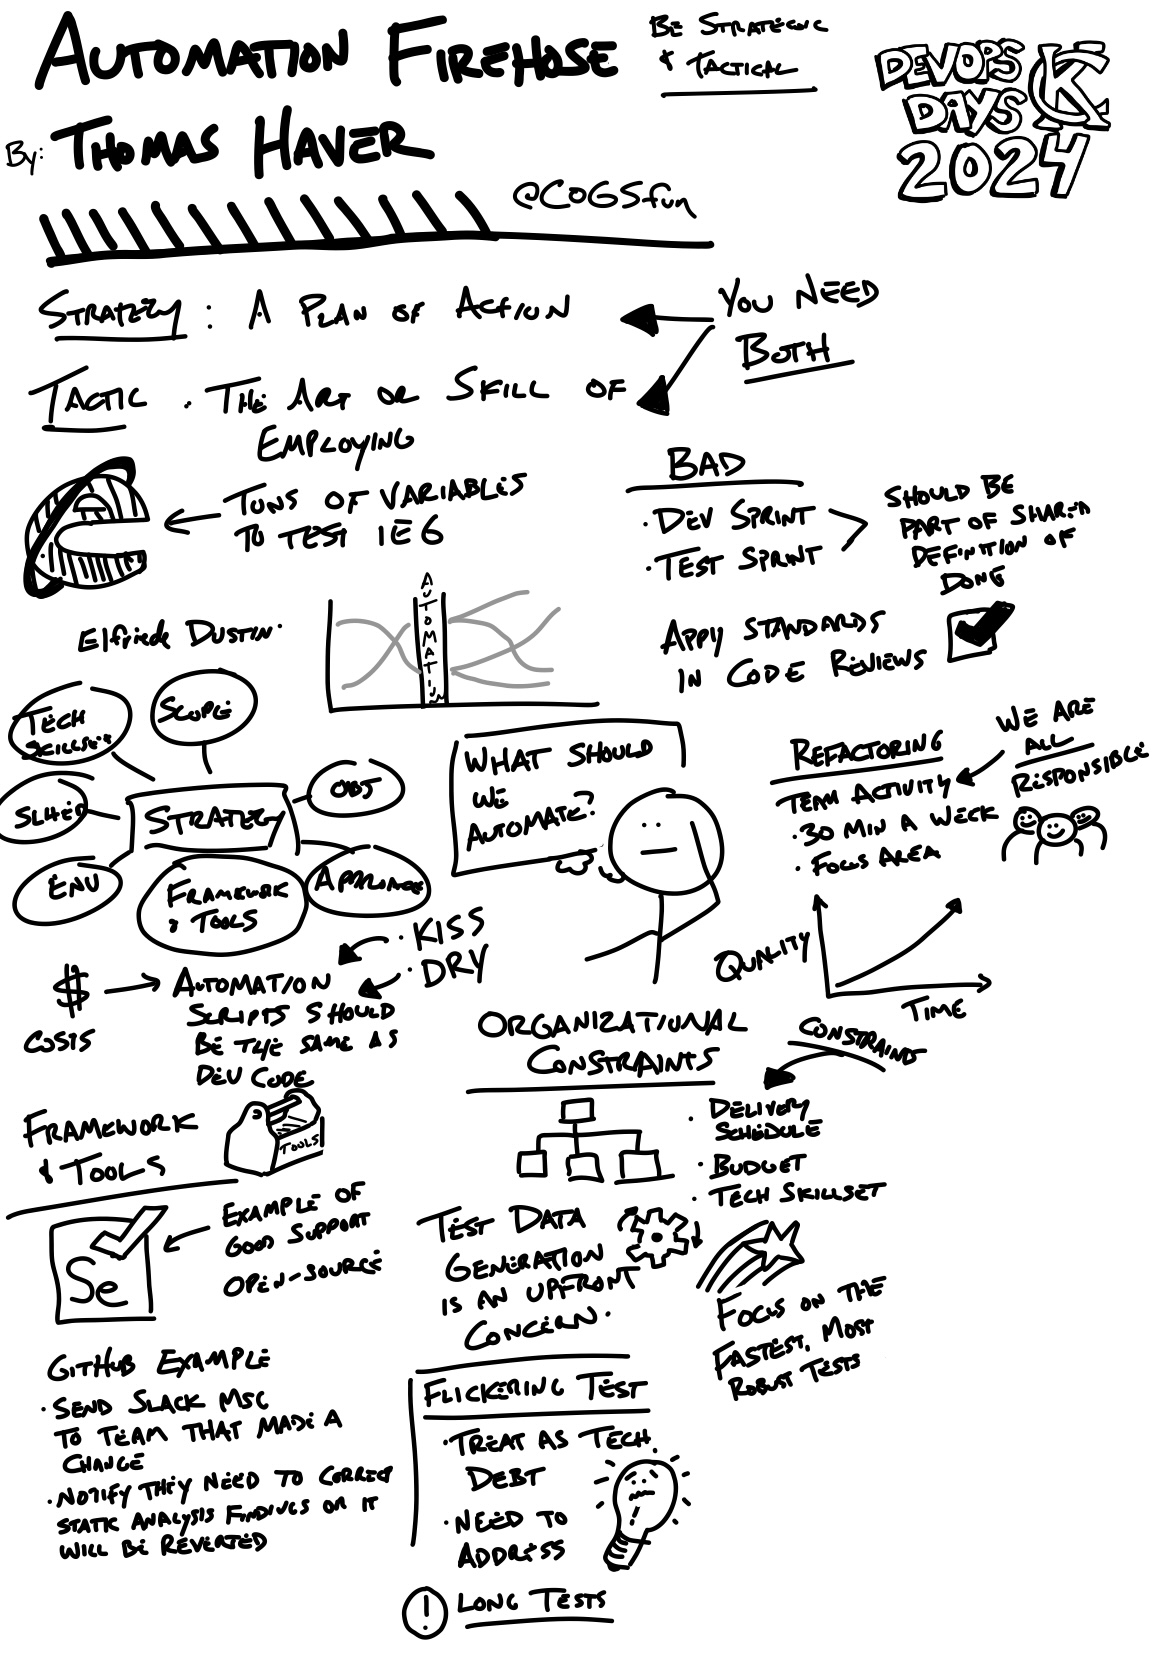 AUTOMATION FIREHOSE
BE STRATEGIC
& TACTICAL
DEVOPS
DAYS KC
2024
By: THOMAS HAVER
@COGSfun
STRATEGY : A PLAN OF ACTION
YOU NEED
BOTH
TACTIC . THE ART OR SKILL OF
EMPLOYING
TONS OF VARIABLES
TO TEST IE6
BAD
· DEV SPRINT
· TEST SPRINT
SHOULD BE
PART OF SHARED
DEFINITION OF
DONE
APPLY STANDARDS
IN CODE REVIEWS
Elfriede DUSTIN
TECH
SKILLSET
SCOPE
SCHED
STRATEGY
OBJ
ENV
FRAMEWORK
& TOOLS
WHAT SHOULD
WE
AUTOMATE?
REFACTORING
TEAM ACTIVITY
· 30 MIN A WEEK
· FOCUS AREA
WE ARE
ALL
RESPONSIBLE
QUALITY
TIME
· KISS
· DRY
$
COSTS
AUTOMATION
SCRIPTS SHOULD
BE THE SAME AS
DEV CODE
ORGANIZATIONAL
CONSTRAINTS
CONSTRAINTS
· DELIVERY
SCHEDULE
· BUDGET
· TECH SKILLSET
FRAMEWORK
& TOOLS
TOOLS
Se
EXAMPLE OF
GOOD SUPPORT
OPEN-SOURCE
TEST DATA
GENERATION
IS AN UPFRONT
CONCERN.
FOCUS ON THE
FASTEST, MOST
ROBUST TESTS
GITHUB EXAMPLE
· SEND SLACK MSG
TO TEAM THAT MADE A
CHANGE
· NOTIFY THEY NEED TO CORRECT
STATIC ANALYSIS FINDINGS OR IT
WILL BE REVERTED
FLICKERING TEST
· TREAT AS TECH.
DEBT
· NEED TO
ADDRESS
! LONG TESTS